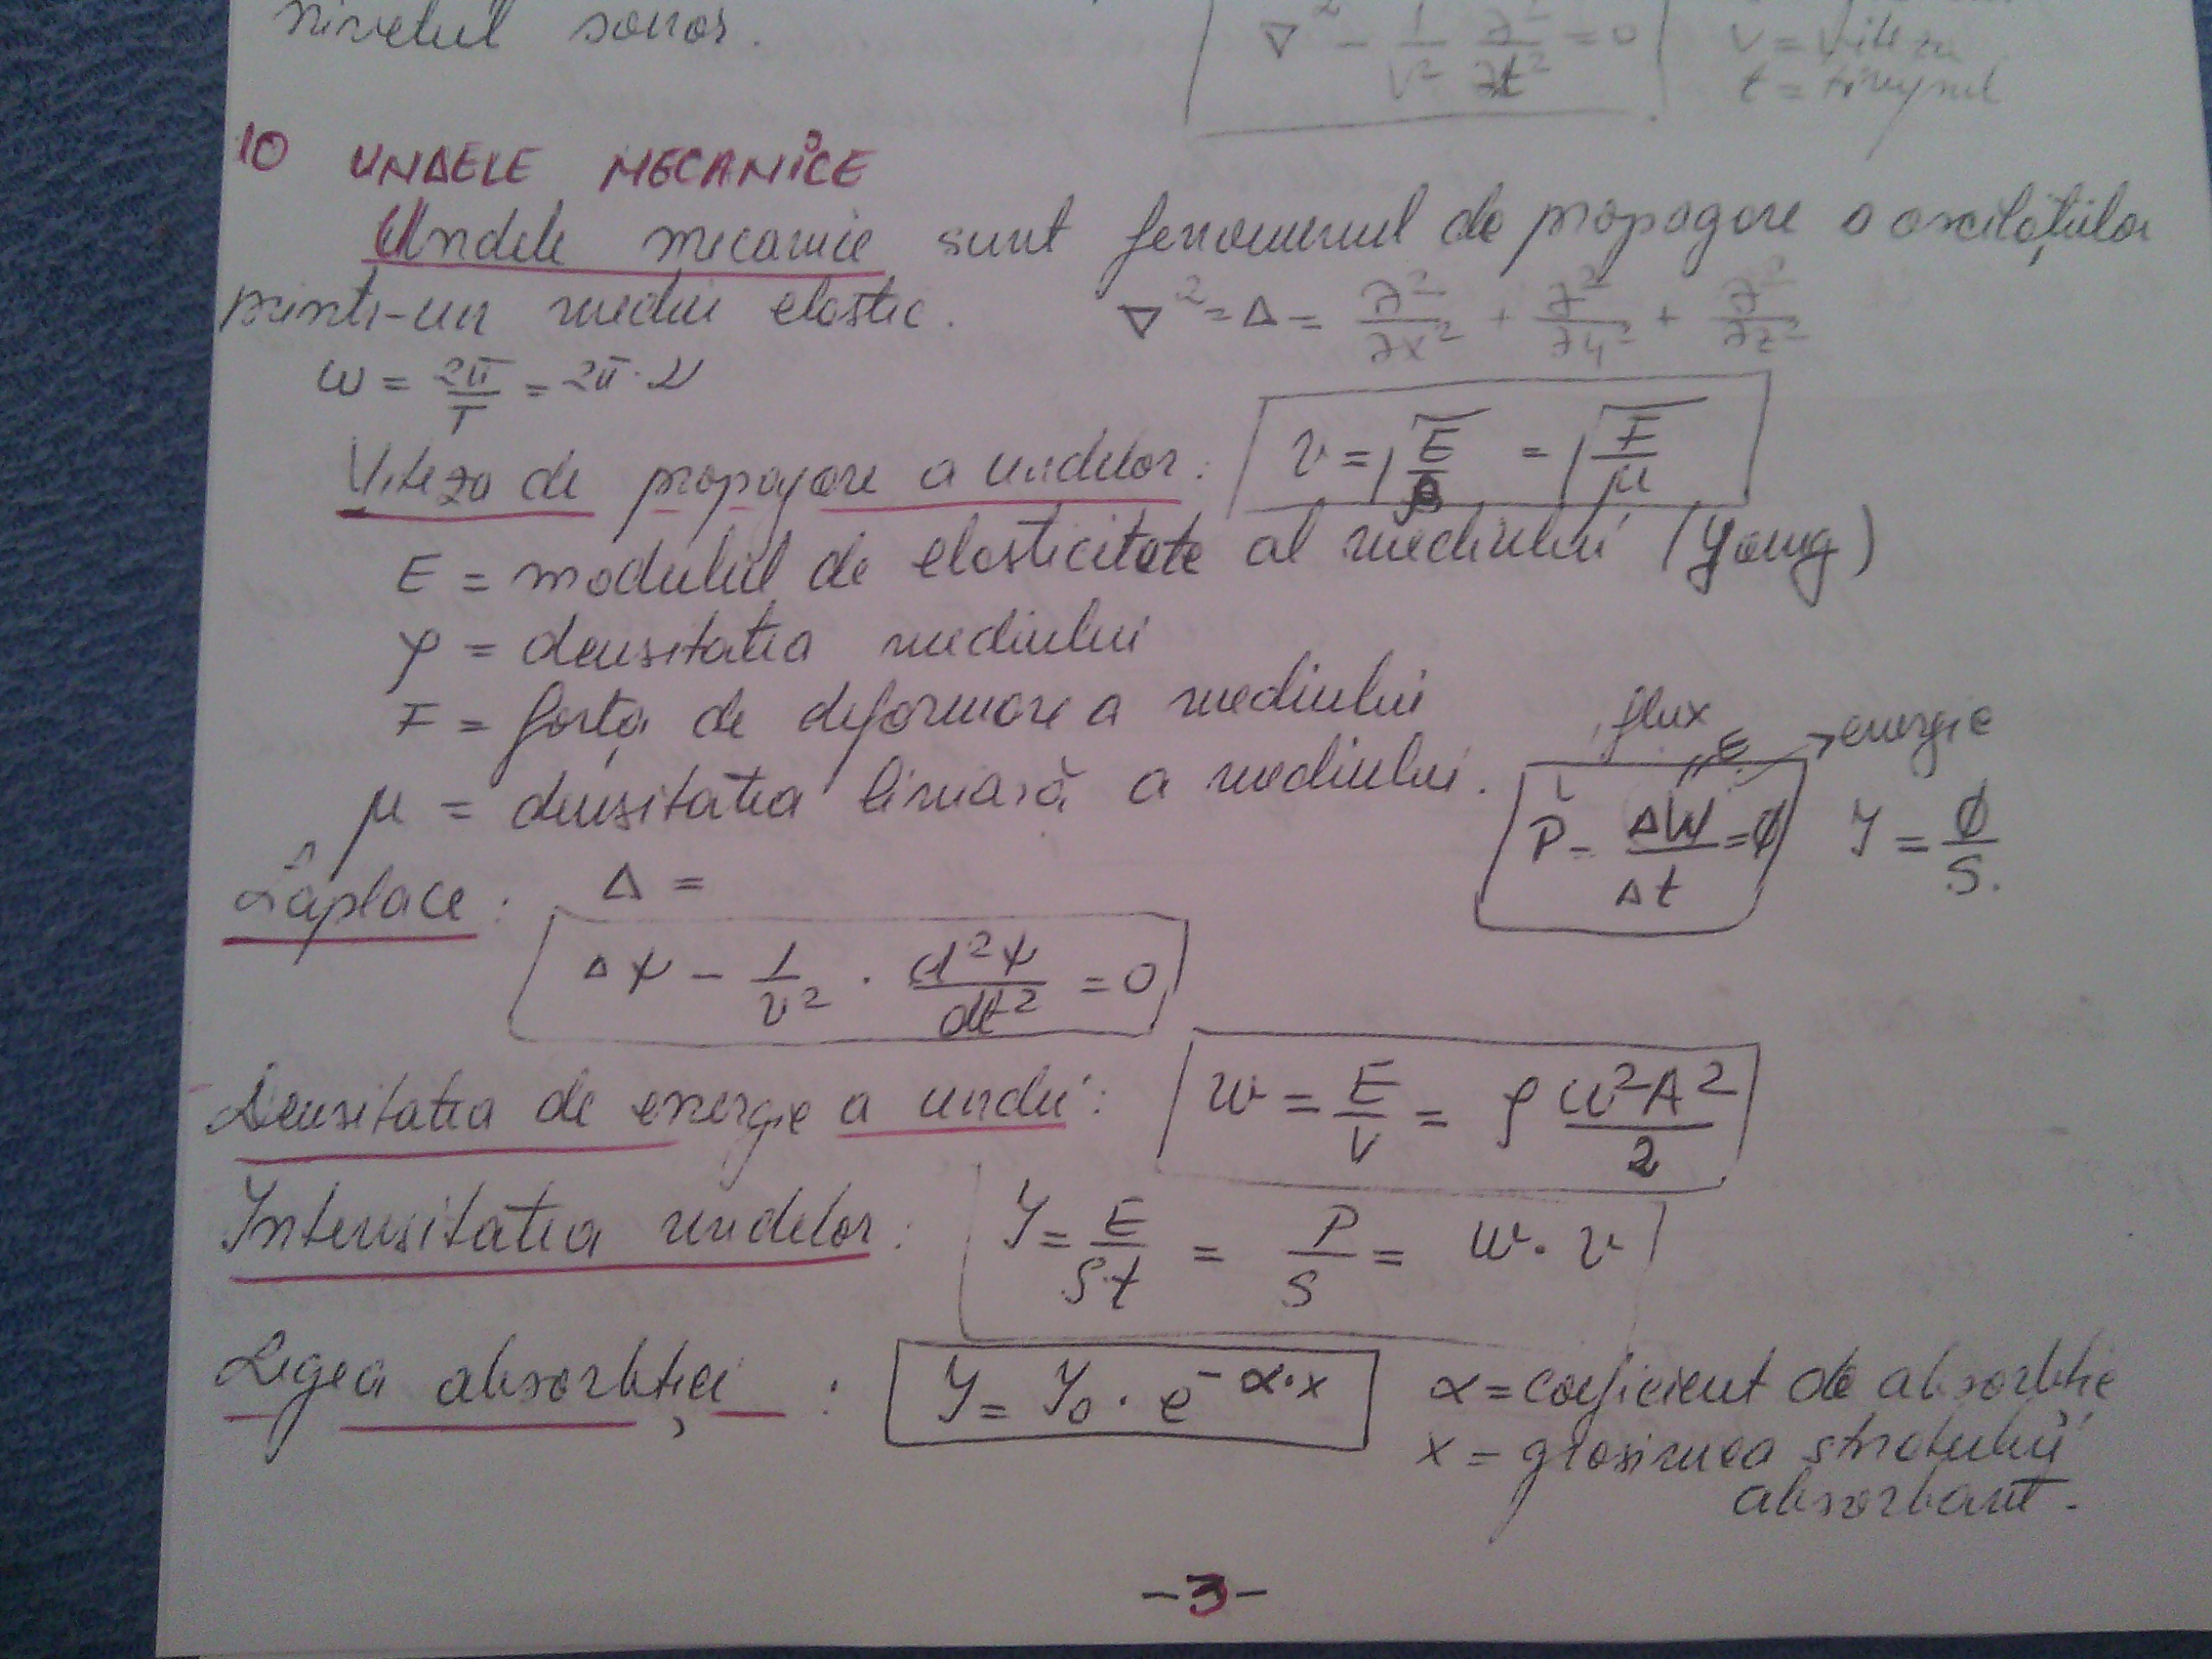 nivelul sonor.
∇² - 1/V² ∂²/∂t² = 0
V = viteza
t = timpul
10 UNDELE MECANICE
Undele mecanice sunt fenomenul de propagare a oscilațiilor
printr-un mediu elastic. ∇² = Δ = ∂²/∂x² + ∂²/∂y² + ∂²/∂z²
ω = 2π/T = 2π·ν
Viteza de propagare a undelor: v = √(E/ρ) = √(F/μ)
E = modulul de elasticitate al mediului (Young)
ρ = densitatea mediului
F = forța de deformare a mediului
flux E → energie
μ = densitatea liniară a mediului.
P = ΔW/Δt = ϕ I = ϕ/S.
Laplace: Δ =
Δψ - 1/v² · d²ψ/dt² = 0
Densitatea de energie a undei: w = E/V = ρ ω²A²/2
Intensitatea undelor: I = E/S·t = P/S = w·v
Legea absorbției: I = I₀ · e^-α·x α = coeficient de absorbție
x = grosimea stratului
absorbant.
-3-